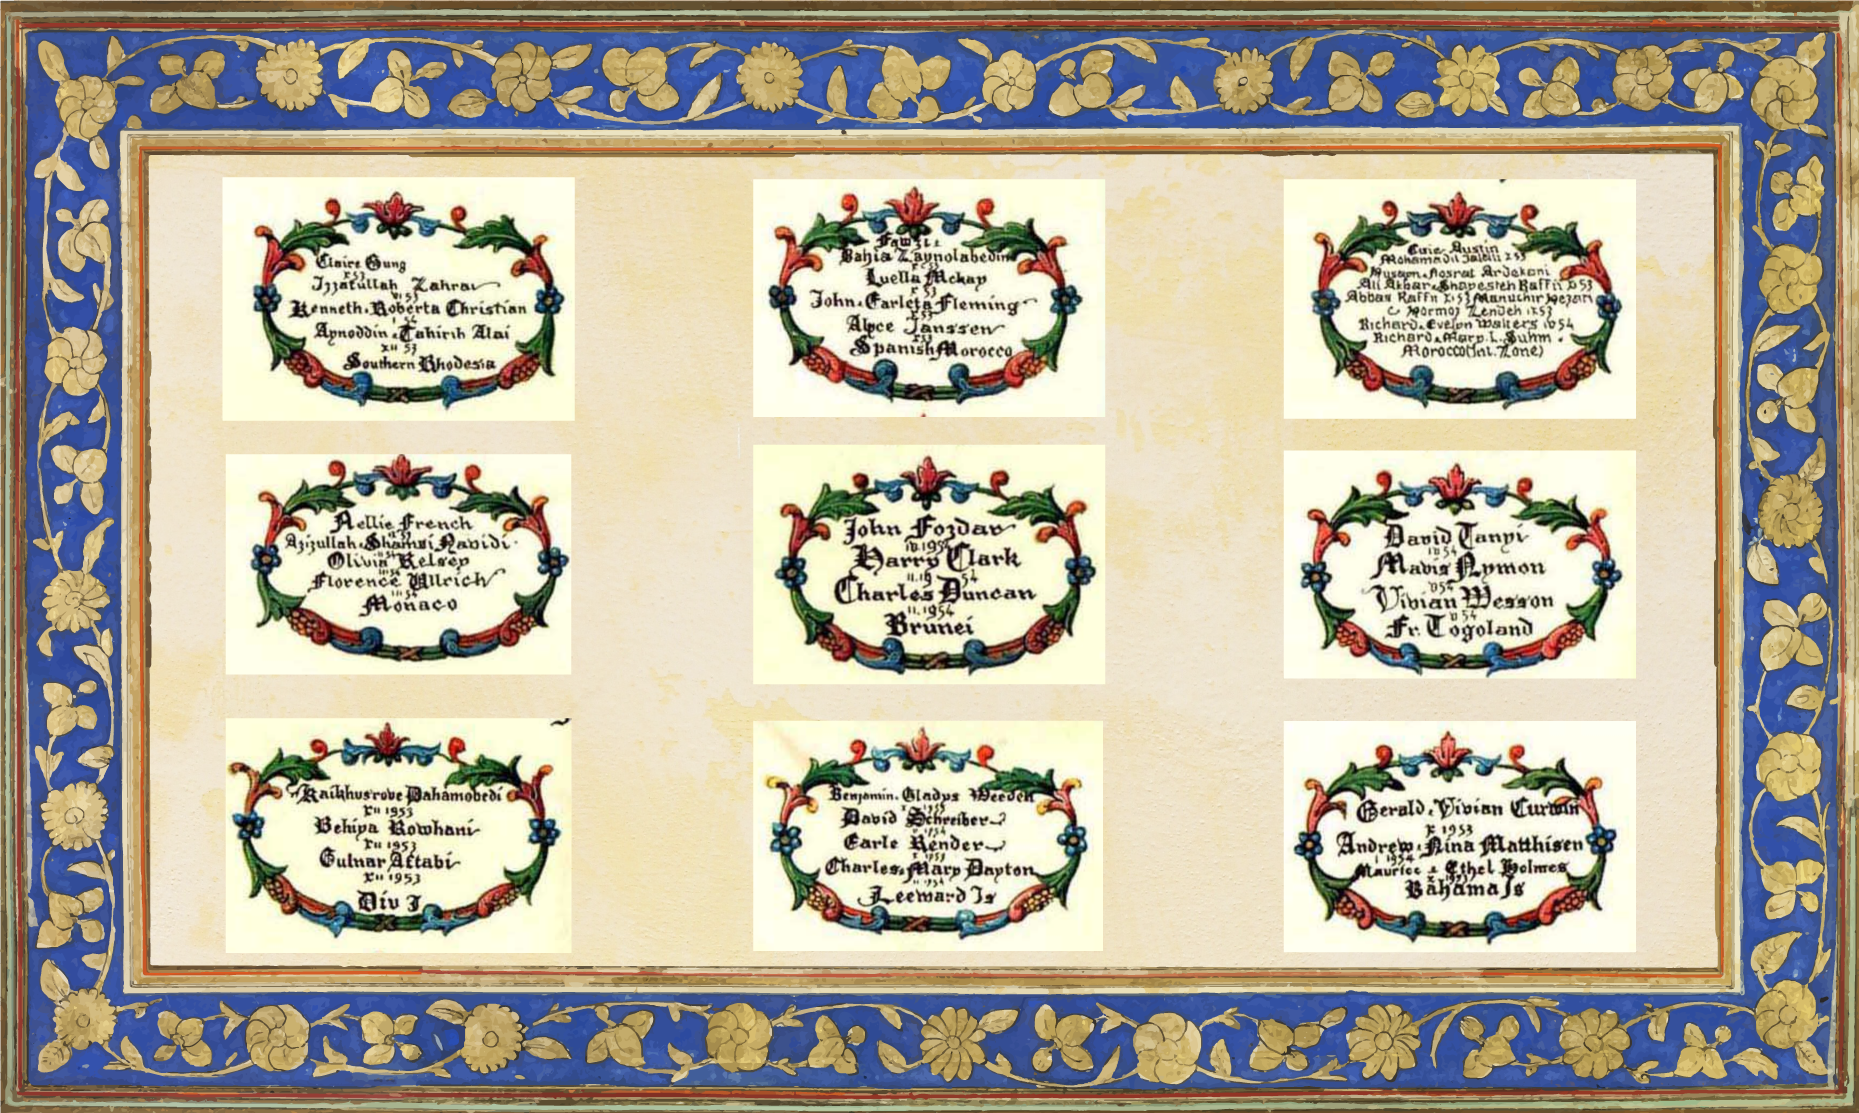 Claire Gung
X 53
Izzatullah Zahrai
VI 53
Kenneth. Roberta Christian
I 54
Aynoddin. Tahirih Alai
XII 53
Southern Rhodesia
Fawzi.
Bahia Zaynolabedin
Luella Mckay
X 53
John. Earleta Fleming
X 53
Alyce Janssen
X 53
Spanish Morocco
Evie Austin
Mohamadil Jalalii X 53
Husayn. Nosrat Ardekani
Ali Akbar. Shayesteh Raffii X 53
Abbas Raffii XI 53 Manuchir Hezari
Hormoz Zendeh IX 53
Richard. Evelyn Walters IV 54
Richard. Mary. L. Suhm.
Morocco (Int. Zone)
Nellie French
Azizullah. Shamsi Navidi
II 54
Olivia Kelsey
III 54
Florence Ullrich
III 54
Monaco
John Fozdar
IV. 1954
Harry Clark
II. 19 54
Charles Duncan
II. 1954
Brunei
David Tanyi
IV 54
Mavis Nymon
V 54
Vivian Wesson
V 54
Fr. Togoland
Kaikhusrove Dahamobedi
XII 1953
Behiya Rowhani
XII 1953
Gulnar Aftabi
XII 1953
Div I
Benjamin. Gladys Weeden
David Schreiber
Earle Render
X 1953
Charles. Mary Dayton
II 1954
Leeward Is
Gerald. Vivian Curwin
X 1953
Andrew. Nina Matthisen
I 1954
Maurice & Ethel Holmes
1953
Bahama Is